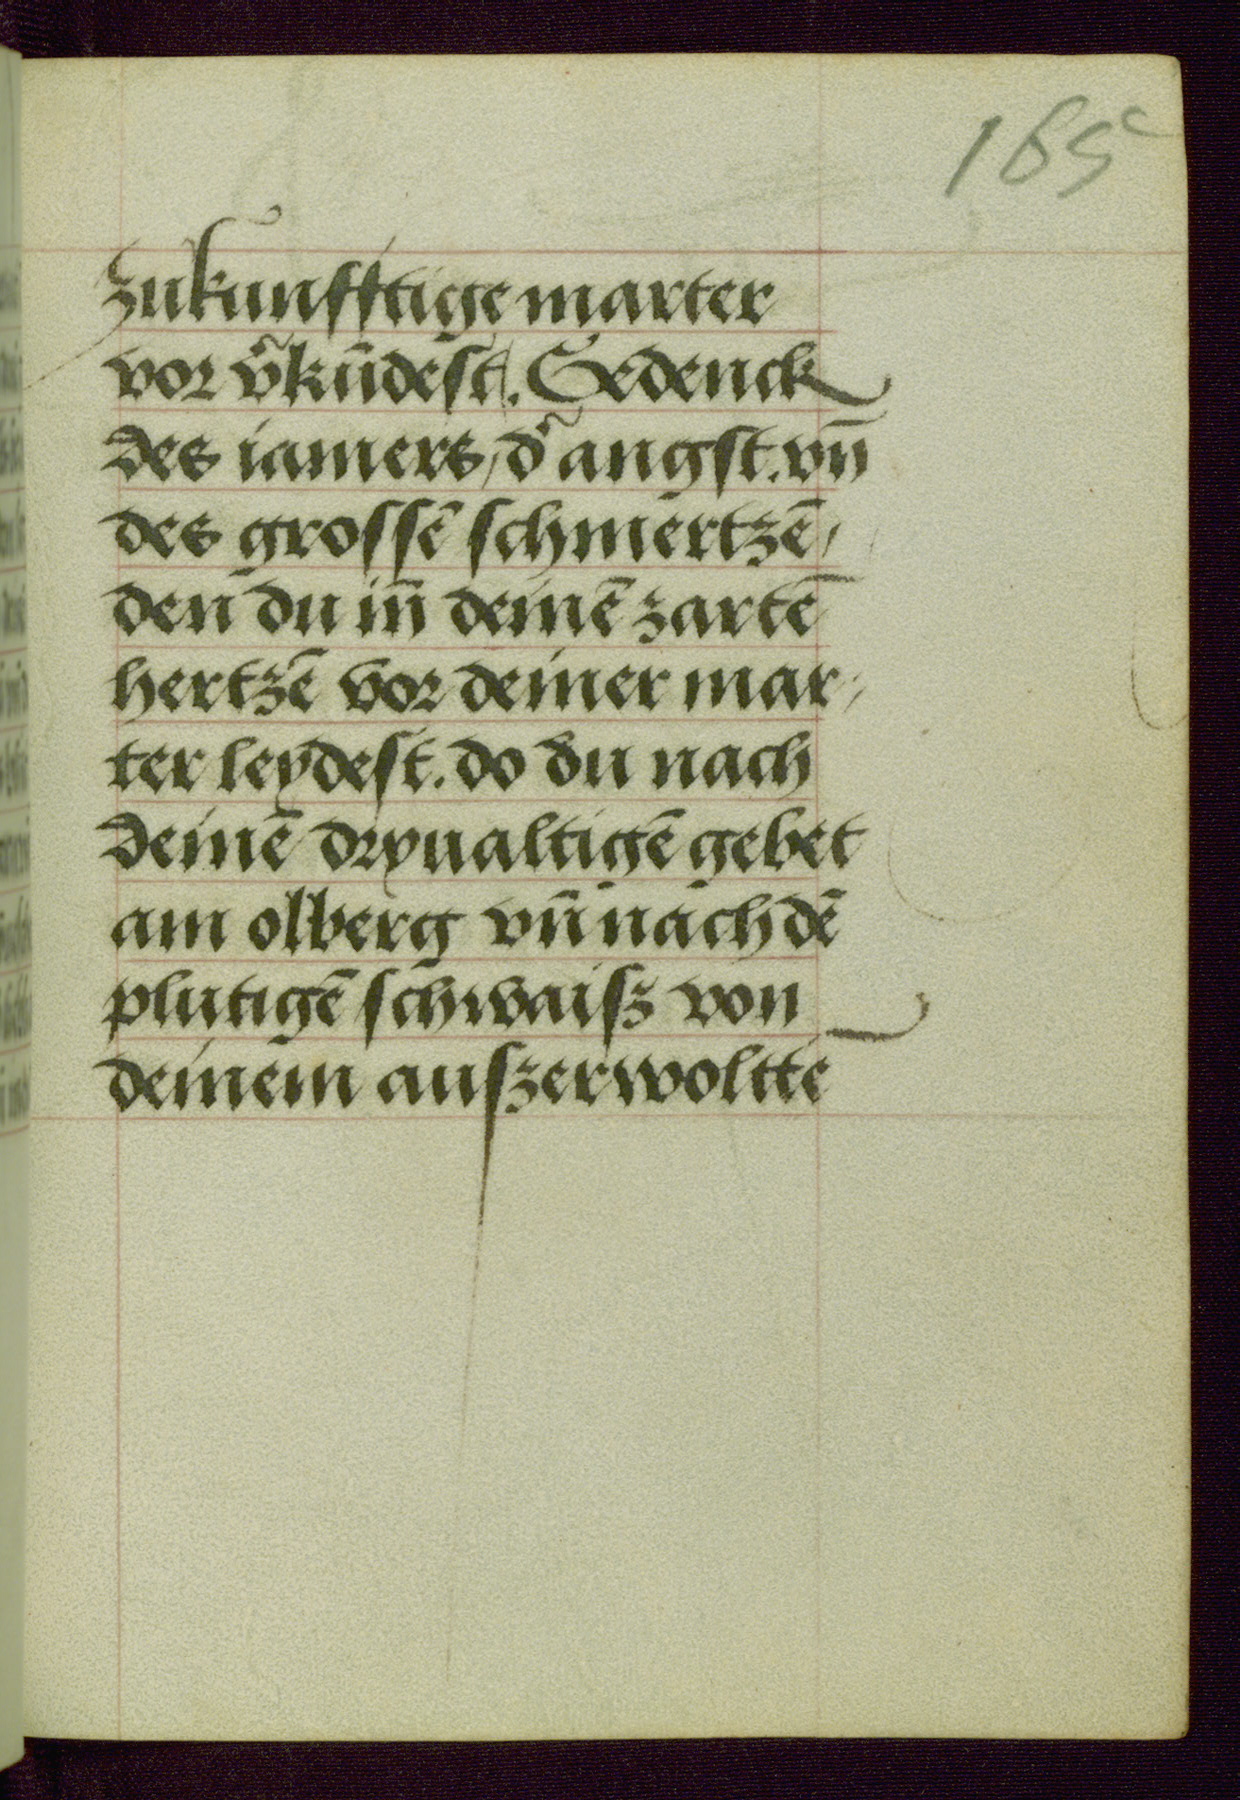 165c
zukunfftige marter
vor v̾kūdest. Gedenck
des iamers, d̾ angst. vn̄
des grossē schmertzē,
den du in̄ deinē zartē
hertzē vor deiner mar,
ter leydest. do du nach
deinē dryualtigē gebet
am olberg vn̄ nach dē
plutigē schwaisz von
deinem auszerwoltte